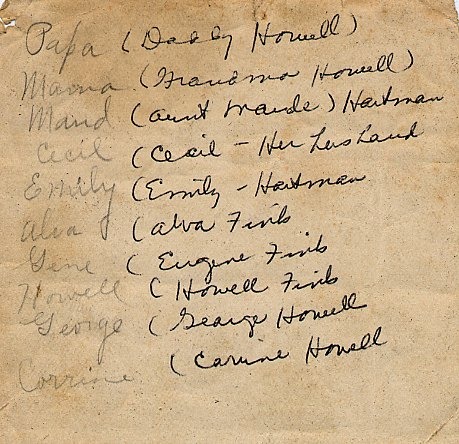 Papa (Daddy Howell)
Mama (Grandma Howell)
Maud (Aunt Maude) Hartman
Cecil (Cecil - Her husband
Emily (Emily - Hartman
Alva (Alva Fink
Gene (Eugene Fink
Howell (Howell Fink
George (George Howell
Corrine (Corrine Howell